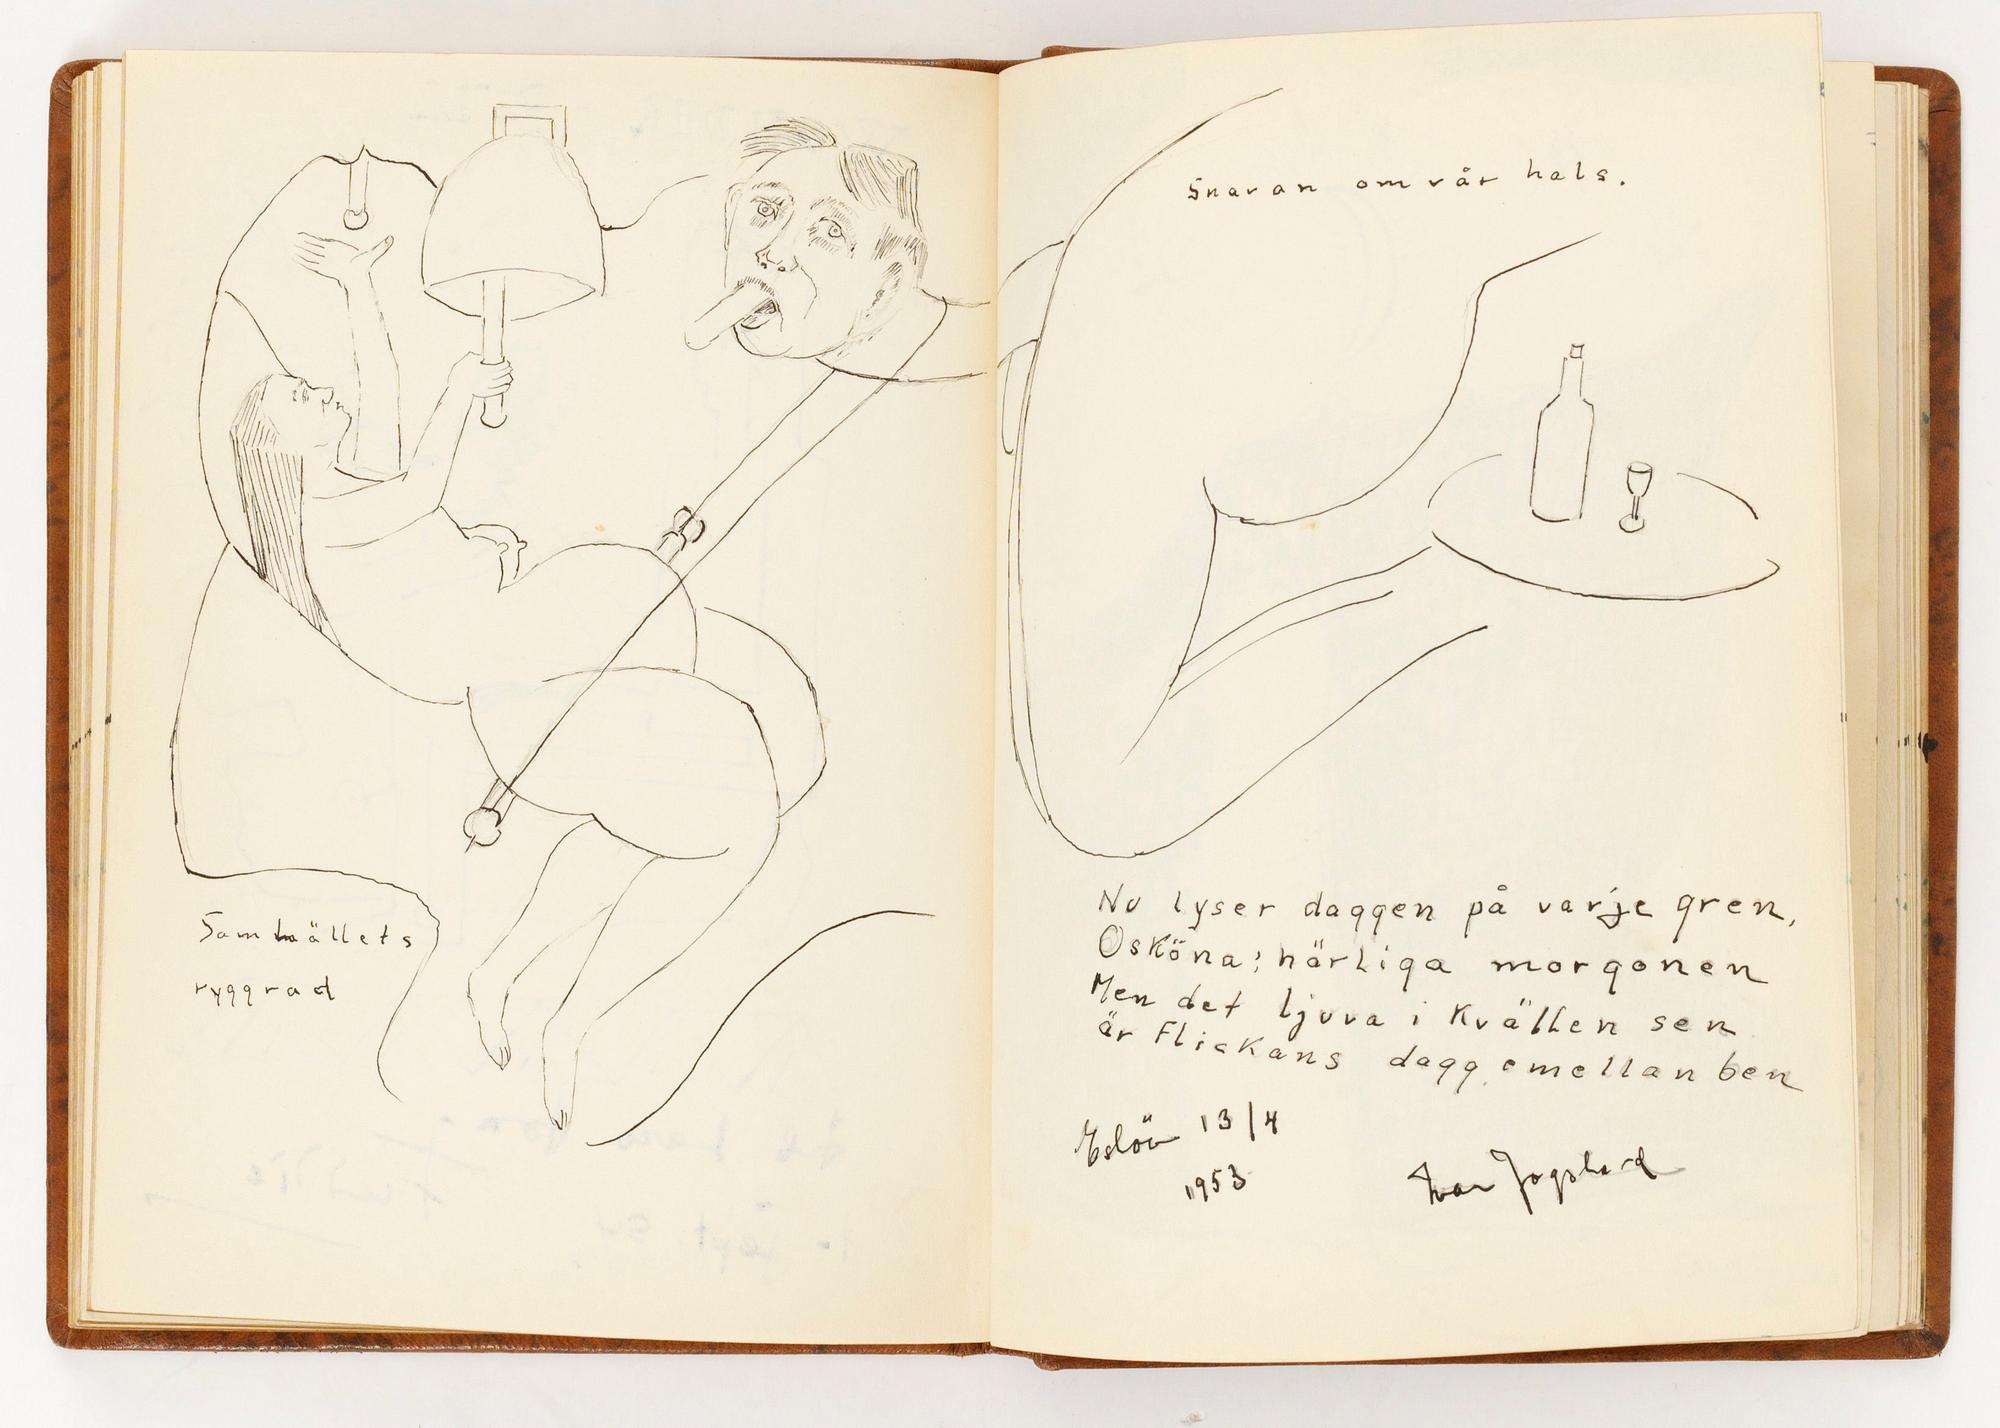 Samhällets
ryggrad
Snaran om vår hals.
Nu lyser daggen på varje gren,
O sköna; härliga morgonen
Men det ljuva i kvällen sen
är Flickans dagg emellan ben
Eslöv 13/4
1953
Ivar